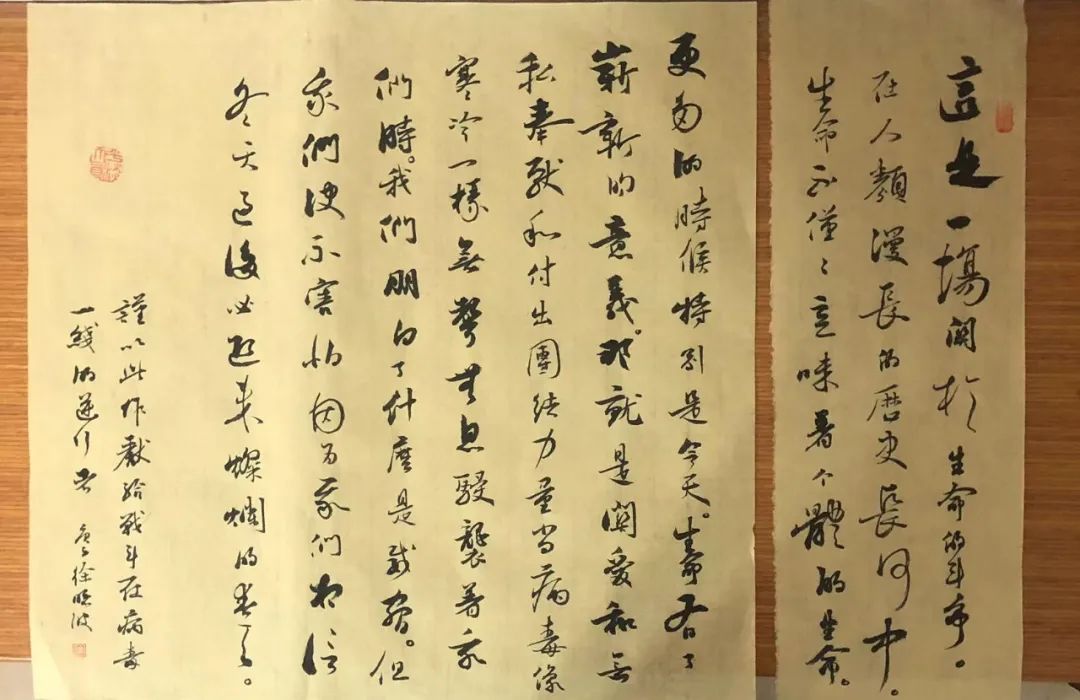 這是一場關於生命的斗争。
在人類漫長的歷史長河中。
生命不僅々意味着个體的生命。
更多的時候特别是今天。生命有了
嶄新的意義。那就是關爱和无
私奉献和付出團结力量当病毒像
寒冷一樣無聲無息駸襲着我
們時。我們明白了什麼是 但
我們 不害怕因为我們相信
冬天過後必迎来燦爛的春天。
謹以此作獻給戰斗在病毒
一綫的逆行者 徐晓波